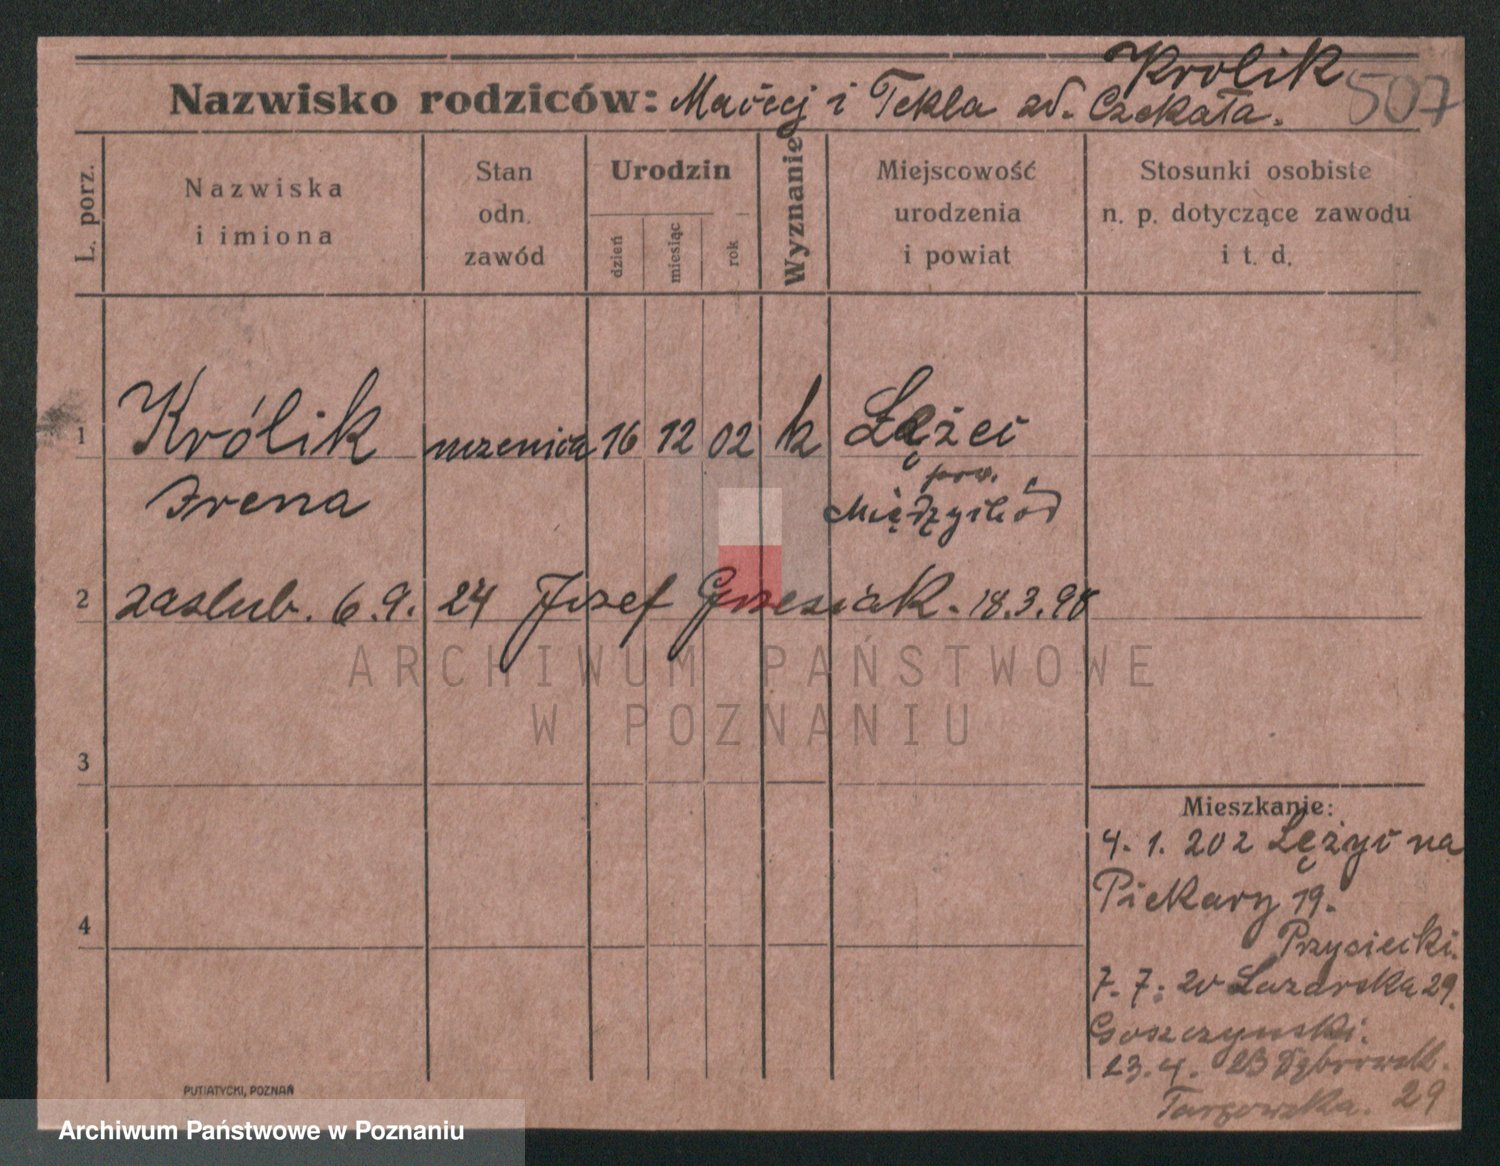 Krolik
Nazwisko rodziców: Maciej i Tekla zd. Czekała.
507
L. porz.
Nazwiska
i imiona
Stan
odn.
zawód
Urodzin
dzień
miesiąc
rok
Wyznanie
Miejscowość
urodzenia
i powiat
Stosunki osobiste
n. p. dotyczące zawodu
i t. d.
1
Królik uczenica 16 12 02 k
Irena
pow.
Międzychód
2 zaslub. 6.9. 24 Józef Grzesiak. 18.3.98
ARCHIWUM PAŃSTWOWE
W POZNANIU
3
Mieszkanie:
4. 1. 202 na
Piekary 19.
4
Przysiecki.
7. 7. 20 Lazarska 29.
Goszczynski.
23. 4. 23
Targowska. 29
PUTIATYCKI, POZNAŃ
Archiwum Państwowe w Poznaniu